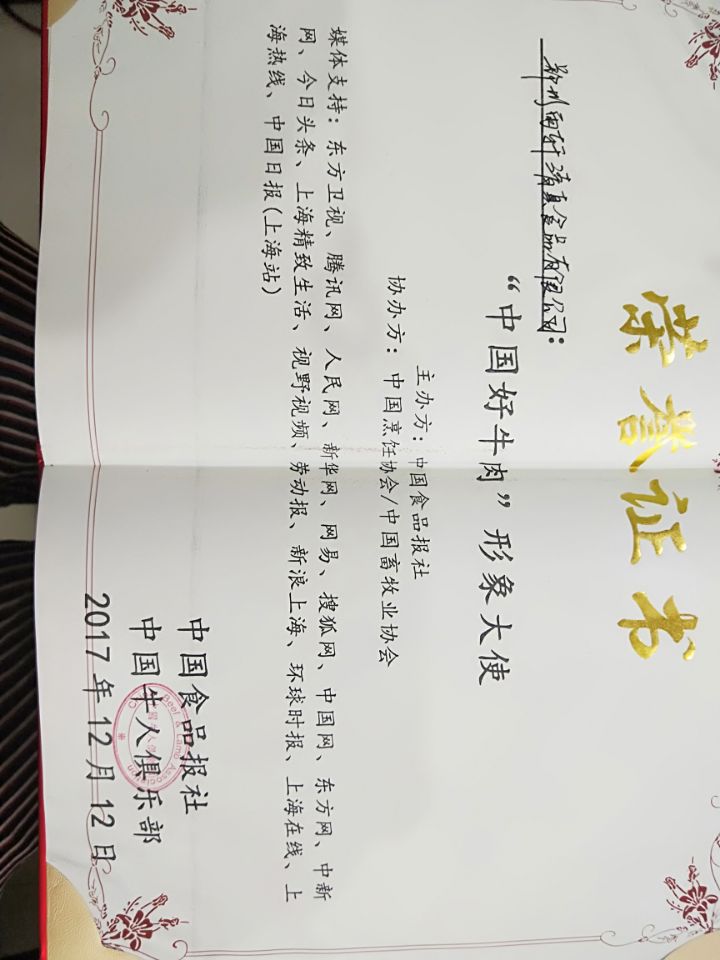 荣誉证书
郑州雨轩清真食品有限公司:
“中国好牛肉”形象大使
主办方：中国食品报社
协办方：中国烹饪协会/中国畜牧业协会
媒体支持：东方卫视、腾讯网、人民网、新华网、网易、搜狐网、中国网、东方网、中新
网、今日头条、上海精致生活、视野视频、劳动报、新浪上海、环球时报、上海在线、上
海热线、中国日报(上海站)
中国食品报社
中国牛人俱乐部
2017年12月12日